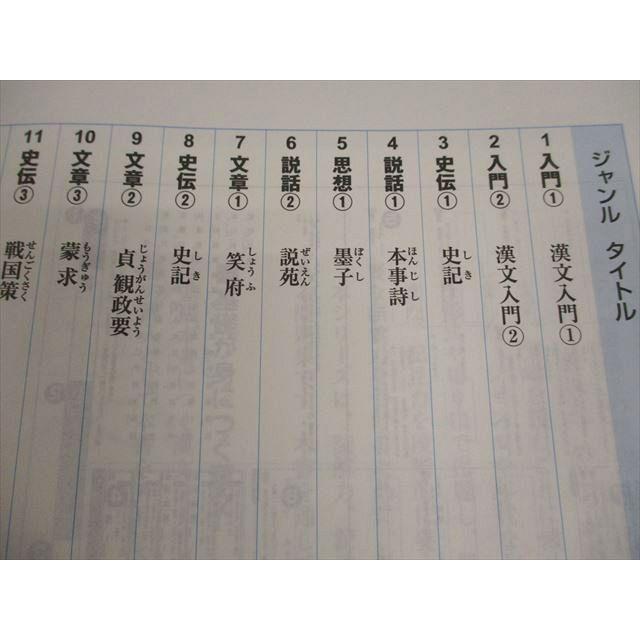 ジャンル タイトル
1 入門① 漢文入門①
2 入門② 漢文入門②
3 史伝① 史記 しき
4 説話① 本事詩 ほんじし
5 思想① 墨子 ぼくし
6 説話② 説苑 ぜいえん
7 文章① 笑府 しょうふ
8 史伝② 史記 しき
9 文章② 貞観政要 じょうがんせいよう
10 文章③ 蒙求 もうぎゅう
11 史伝③ 戦国策 せんごくさく